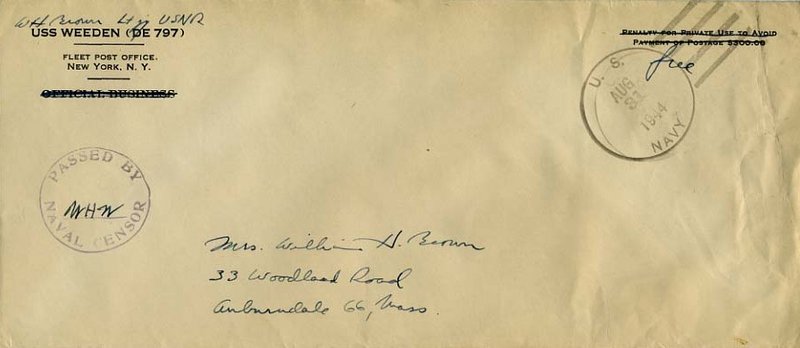 W H Brown Lt jg USNR
USS WEEDEN (DE 797)
FLEET POST OFFICE
NEW YORK, N. Y.
OFFICIAL BUSINESS
PENALTY FOR PRIVATE USE TO AVOID
PAYMENT OF POSTAGE $300.00
free
U. S. NAVY
AUG
31
1944
PASSED BY
NAVAL CENSOR
WHW
Mrs. William H. Brown
33 Woodland Road
Auburndale 66, Mass.